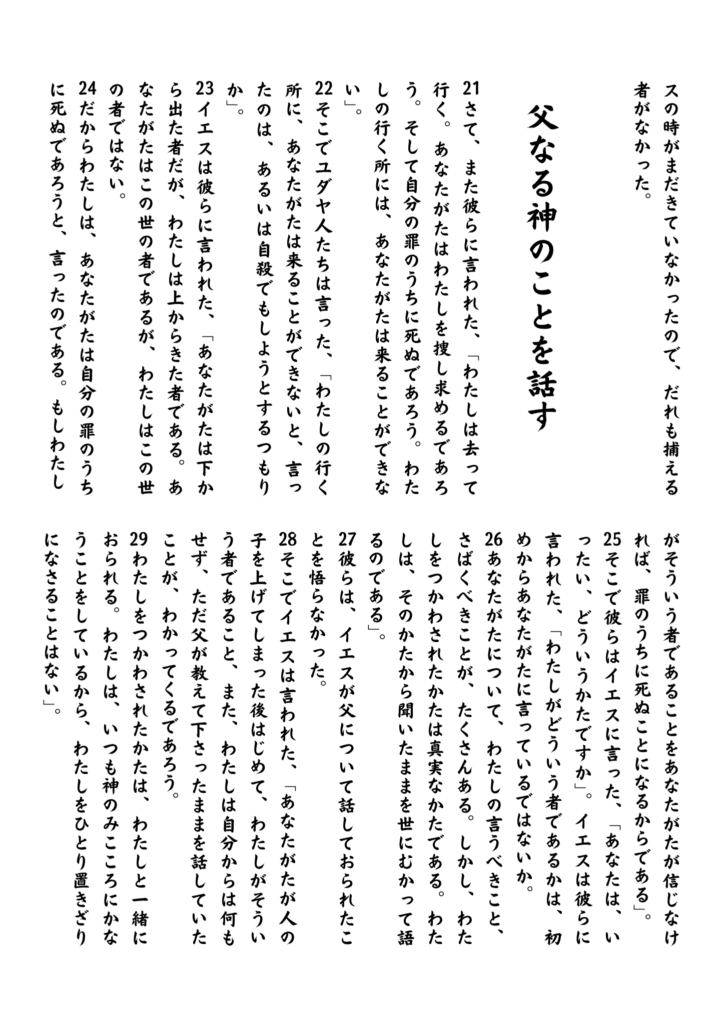 スの時がまだきていなかったので、だれも捕える
者がなかった。
父なる神のことを話す
21さて、また彼らに言われた、「わたしは去って
行く。あなたがたはわたしを捜し求めるであろ
う。そして自分の罪のうちに死ぬであろう。わた
しの行く所には、あなたがたは来ることができな
い」。
22そこでユダヤ人たちは言った、「わたしの行く
所に、あなたがたは来ることができないと、言っ
たのは、あるいは自殺でもしようとするつもり
か」。
23イエスは彼らに言われた、「あなたがたは下か
ら出た者だが、わたしは上からきた者である。あ
なたがたはこの世の者であるが、わたしはこの世
の者ではない。
24だからわたしは、あなたがたは自分の罪のうち
に死ぬであろうと、言ったのである。もしわたし
がそういう者であることをあなたがたが信じなけ
れば、罪のうちに死ぬことになるからである」。
25そこで彼らはイエスに言った、「あなたは、い
ったい、どういうかたですか」。イエスは彼らに
言われた、「わたしがどういう者であるかは、初
めからあなたがたに言っているではないか。
26あなたがたについて、わたしの言うべきこと、
さばくべきことが、たくさんある。しかし、わた
しをつかわされたかたは真実なかたである。わた
しは、そのかたから聞いたままを世にむかって語
るのである」。
27彼らは、イエスが父について話しておられたこ
とを悟らなかった。
28そこでイエスは言われた、「あなたがたが人の
子を上げてしまった後はじめて、わたしがそうい
う者であること、また、わたしは自分からは何も
せず、ただ父が教えて下さったままを話していた
ことが、わかってくるであろう。
29わたしをつかわされたかたは、わたしと一緒に
おられる。わたしは、いつも神のみこころにかな
うことをしているから、わたしをひとり置きざり
になさることはない」。